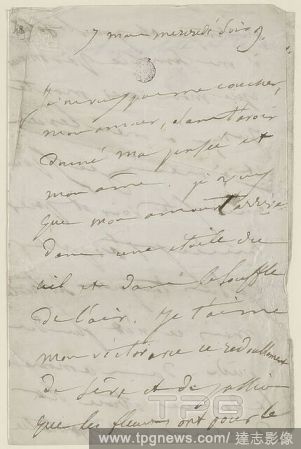 7 mars mercredi soir 9h
Je ne veux pas me coucher,
mon amour, sans t'avoir
donné ma pensée et
mon âme. Je veux
que mon amour t'arrive
dans une étoile du
ciel et dans le souffle
de l'air. Je t'aime
mon victor avec ce redoublement
de sève et de
que les fleurs ont pour le
TPG
www.tpgnews.com | 達志影像